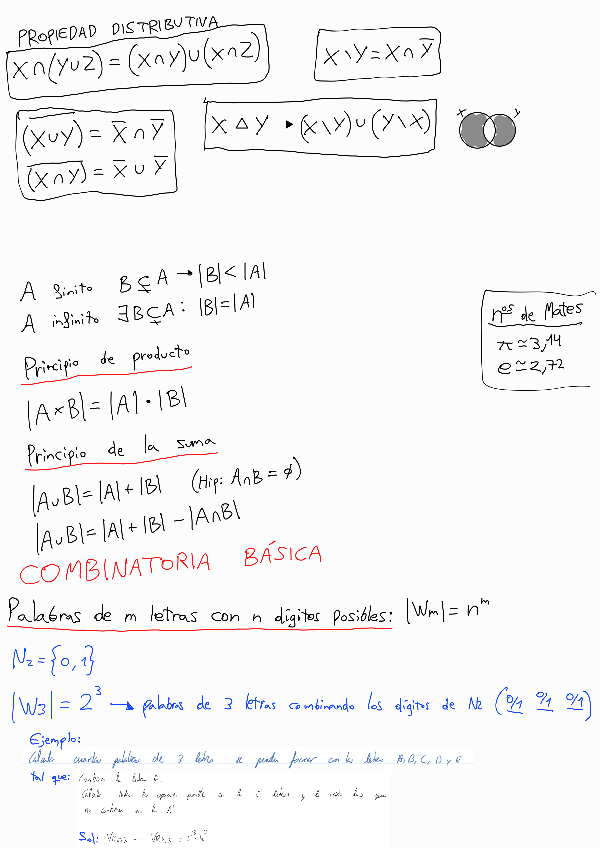 PROPIEDAD DISTRIBUTIVA
X∩(Y∪Z) = (X∩Y)∪(X∩Z)
X\Y = X∩Y̅
(X∪Y)̅ = X̅ ∩ Y̅
(X∩Y)̅ = X̅ ∪ Y̅
X △ Y ▸ (X\Y)∪(Y\X)
X Y
A finito B⊊A → |B|<|A|
A infinito ∃B⊊A: |B|=|A|
nos de Mates
π≃3,14
e≃2,72
Principio de producto
|A×B|=|A|·|B|
Principio de la suma
|A∪B|=|A|+|B| (Hip: A∩B=∅)
|A∪B|=|A|+|B|-|A∩B|
COMBINATORIA BÁSICA
Palabras de m letras con n dígitos posibles: |Wm|=n^m
N2={0,1}
|W3|=2^3 → palabras de 3 letras combinando los dígitos de N2 (0/1 0/1 0/1)
Ejemplo:
palabras de 3 letras se pueden formar con las letras A, B, C, D y E
tal que: la letra
Sol: